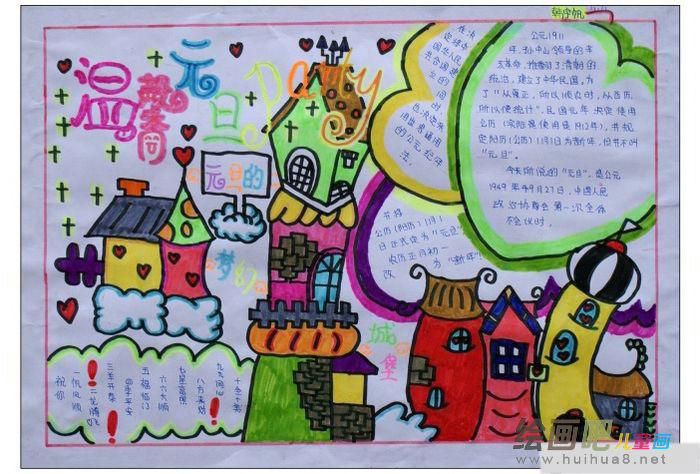 温馨
元旦party
元旦的
梦幻
城堡
公元1911
年,孙中山领导的辛
亥革命,推翻了清朝的
统治,建立了中华民国,为
了“从夏正,所以顺农时,从西历,
所以便统计”,民国元年决定使用
公历(实际是使用是1912年),并规
定阳历(公历)1月1日为新年,但并不叫
“元旦”。
今天所说的“元旦”,是公元
1949年9月27日,中国人民
政治协商会第一次全体
会议时,
在决
共合国建
立的同
时
也决定采
用世界通用
的公元纪年
法。
公历(阳历)1月1
日正式定为“元旦”
农历正月初一
改为“新年”。
祝你
一帆风顺
二龙腾飞
三羊开泰
四季平安
五福临门
六六大顺
七星高照
八方来财
九九同心
十全十美
绘画吧儿童画
www.huihua8.net